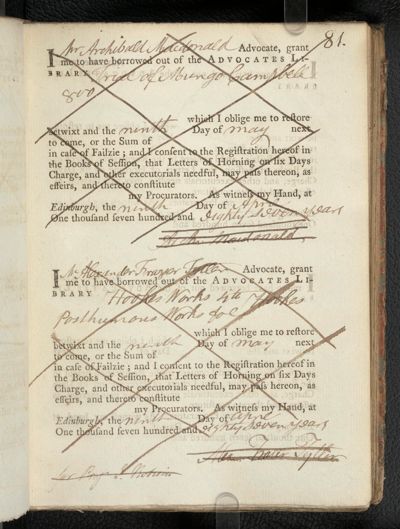 81.
I Mr Archibald Macdonald Advocate, grant
me to have borrowed out of the ADVOCATES LI-
BRARY Trial of Mungo Campbell
8vo
which I oblige me to reſtore
betwixt and the ninth Day of may next
to come, or the Sum of
in caſe of Failzie; and I conſent to the Regiſtration hereof in
the Books of Seſſion, that Letters of Horning on ſix Days
Charge, and other executorials needful, may paſs thereon, as
effeirs, and thereto conſtitute
my Procurators. As witneſs my Hand, at
Edinburgh, the ninth Day of April
One thouſand ſeven hundred and eighty seven years
Macdonald
I Mr Alexander Frazer Tytler Advocate, grant
me to have borrowed out of the ADVOCATES LI-
BRARY Hookes Works 4to Hookes
Posthumous Works
which I oblige me to reſtore
betwixt and the ninth Day of may next
to come, or the Sum of
in caſe of Failzie; and I conſent to the Regiſtration hereof in
the Books of Seſſion, that Letters of Horning on ſix Days
Charge, and other executorials needful, may paſs hereon, as
effeirs, and thereto conſtitute
my Procurators. As witneſs my Hand, at
Edinburgh, the ninth Day of april
One thouſand ſeven hundred and eighty seven years
Tytler